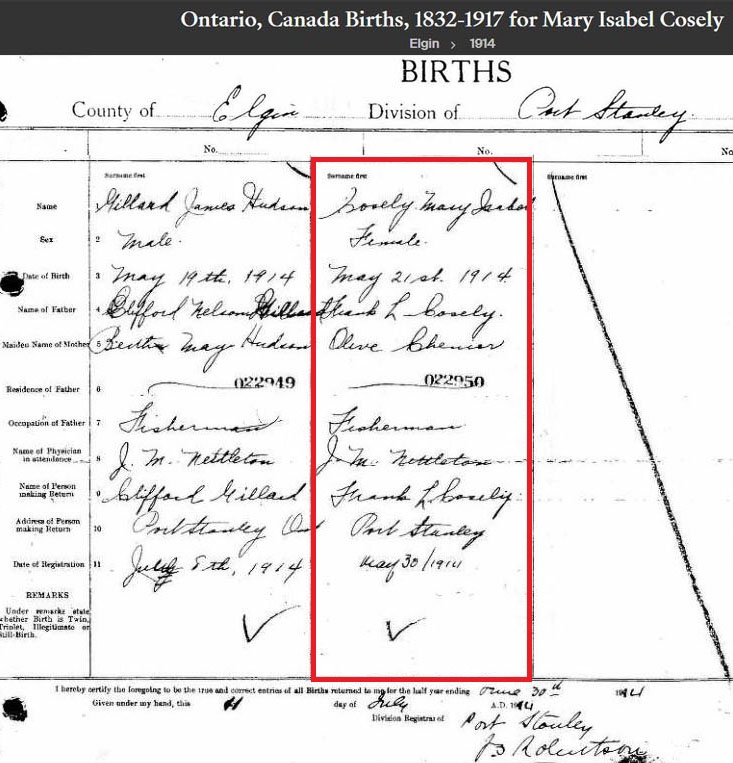 Ontario, Canada Births, 1832-1917 for Mary Isabel Cosely
Elgin > 1914
BIRTHS
County of Elgin Division of Port Stanley.
No. No. No
Surname first Surname first Surname first
Name 1 Gillard James Hudson Cosely Mary Isabel
Sex 2 Male. Female.
Date of Birth 3 May 19th, 1914 May 21st. 1914
Name of Father 4 Clifford Nelson Gillard Frank L Cosely.
Maiden Name of Mother 5 Bertha May Hudson Olive Chenier
Residence of Father 6 022949 022950
Occupation of Father 7 Fisherman Fisherman
Name of Physician in attendance 8 J. M. Nettleton J. M. Nettleton
Name of Person making Return 9 Clifford Gillard Frank L Cosely.
Address of Person making Return 10 Port Stanley Ont Port Stanley
Date of Registration 11 July 8th, 1914 May 30/1914
REMARKS
Under remarks state
whether Birth is Twin,
Triplet, Illegitimate or
Still-Birth.
I hereby certify the foregoing to be the true and correct entries of all Births returned to me for the half year ending June 30th 1914
Given under my hand, this day of July A.D. 1914
Division Registrar of Port Stanley
Robertson